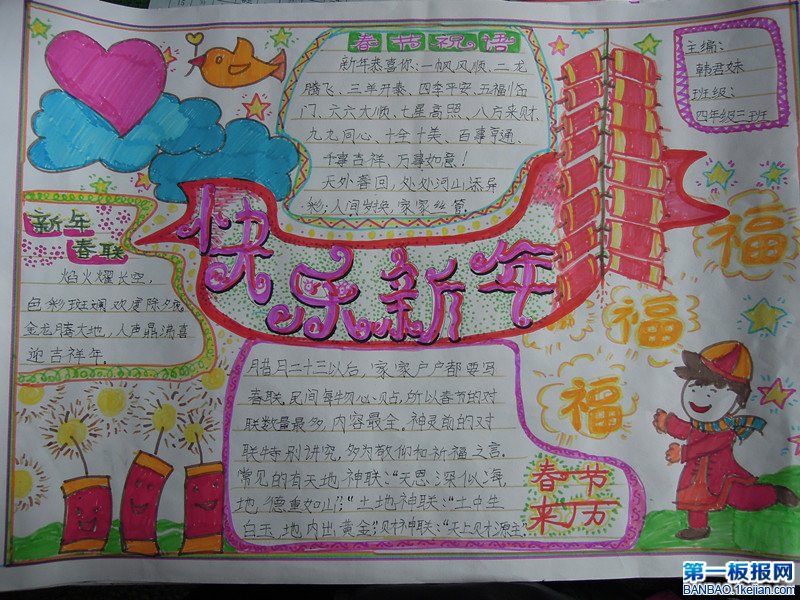 春节祝语
新年恭喜你:一帆风顺、二龙
腾飞、三羊开泰、四季平安、五福临
门、六六大顺、七星高照、八方来财
九九同心、十全十美、百事亨通、
千事吉祥、万事如意!
天外春回,处处河山添异
彩;人间岁换,家家丝管.
主编:
韩君妹
班级:
四年级三班
新年
春联
焰火耀长空,
色彩斑斓欢度除夕夜
金龙腾大地,人声鼎沸喜
迎吉祥年.
快乐新年
福
福
福
腊月二十三以后,家家户户都要写
春联,民间每物心贴,所以春节的对
联数量最多,内容最全.神灵前的对
联特别讲究,多为敬仰和祈福之言.
常见的有天地神联:“天恩深似海
地德重如山;”土地神联:“土中生
白玉,地内出黄金;”财神联:“天上财源主
春节
来历
第一板报网
BANBAO.1kejian.com